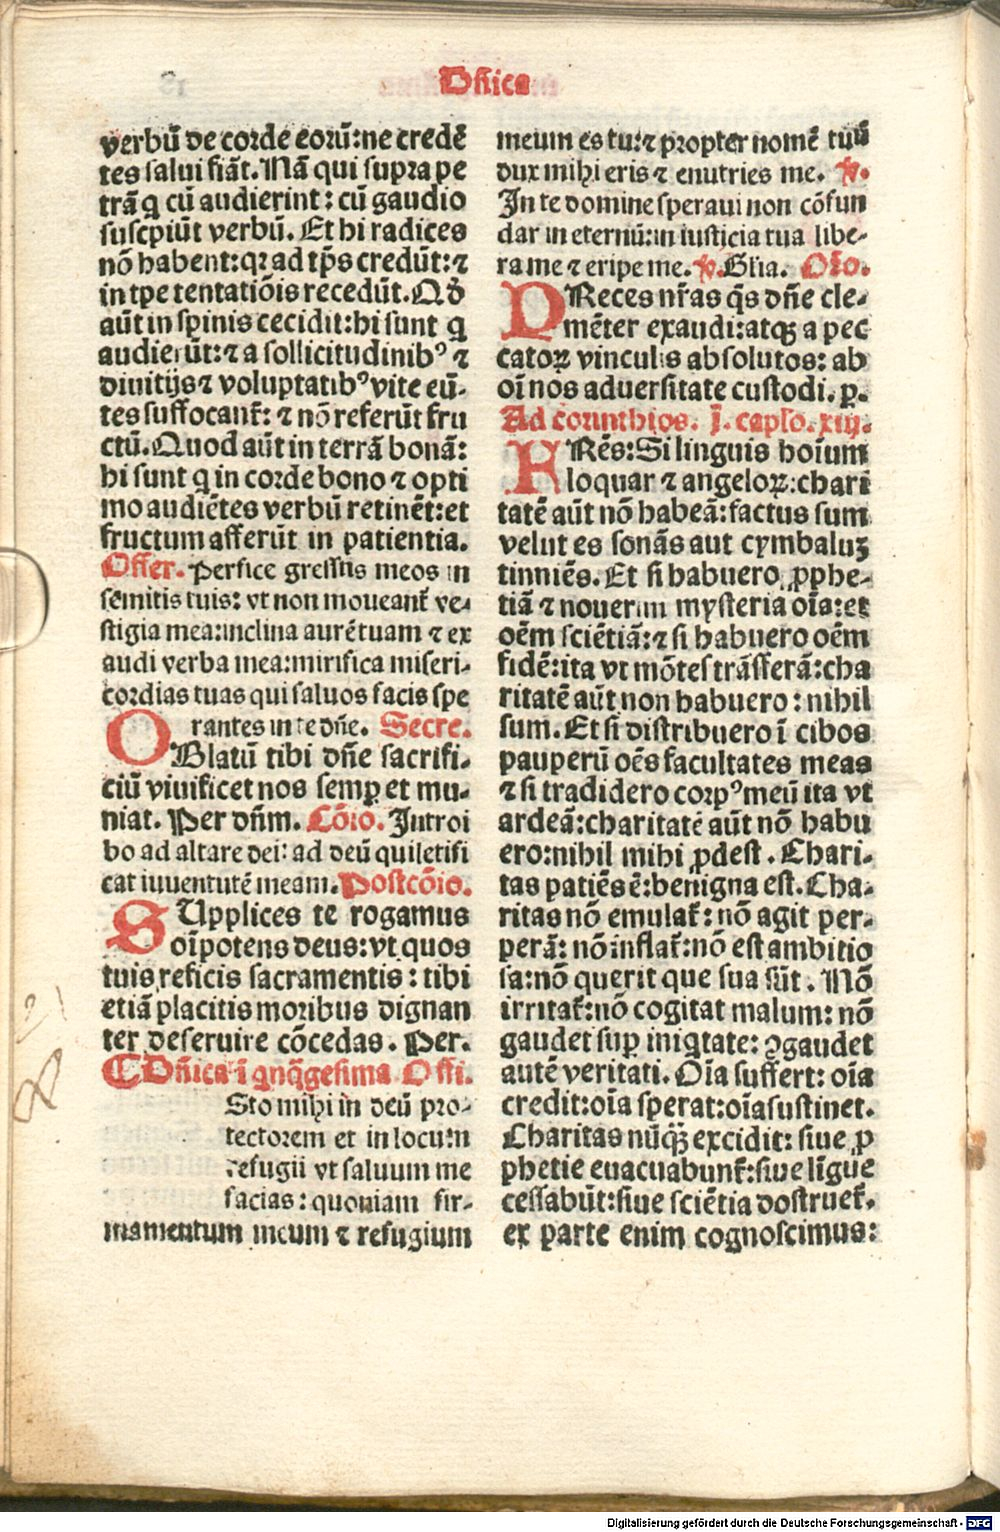 Dn̄ica
verbū de corde eorū: ne credē
tes salui fiāt. Nā qui supra pe
trā q̄ cū audierint: cū gaudio
suscpiūt verbū. Et hi radices
nō habent: qꝛ ad tp̄s credūt: ⁊
in tpe tentatiōis recedūt. Qd̄
aūt in spinis cecidit: hi sunt q̄
audierūt: ⁊ a sollicitudinibꝰ ⁊
diuitijs ⁊ voluptatibꝰ vite eū-
tes suffocant᷑: ⁊ nō referūt fru
ctū. Quod aūt in terrā bonā:
hi sunt q̄ in corde bono ⁊ opti
mo audiētes verbū retinēt: et
fructum afferūt in patientia.
Offer. Perfice gressus meos in
semitis tuis: vt non moueant᷑ ve-
stigia mea: inclina aurē tuam ⁊ ex
audi verba mea: mirifica miseri-
cordias tuas qui saluos facis spe
rantes in te dn̄e. Secre.
OBlatū tibi dn̄e sacrifi-
ciū viuificet nos semꝑ et mu-
niat. Per dn̄m. Cōio. Introi
bo ad altare dei: ad deū qui letifi
cat iuuentutē meam. Postcōio.
SUpplices te rogamus
oīpotens deus: vt quos
tuis reficis sacramentis: tibi
etiā placitis moribus dignan
ter deseruire cōcedas. Per.
⸿ Dn̄ica ī qnq̄gesima Offi.
Sto mihi in deū pro-
tectorem et in locum
refugii vt saluum me
facias: quoniam fir-
mamentum meum ⁊ refugium
meum es tu: ⁊ propter nomē tuū
dux mihi eris ⁊ enutries me. ℣.
In te domine speraui non cōfun
dar in eternū: in iusticia tua libe-
ra me ⁊ eripe me. ℣. Gl̄ia. Or̄o.
PReces nr̄as q̄s dn̄e cle-
mēter exaudi: atqꝫ a pec
catoꝝ vinculis absolutos: ab
oī nos aduersitate custodi. p̄.
Ad corinthios. j. caplo. xiij.
FRēs: Si linguis hoīum
loquar ⁊ angeloꝝ: chari
tatē aūt nō habeā: factus sum
velut es sonās aut cymbaluꝫ
tinniēs. Et si habuero ꝓphe-
tiā ⁊ nouerim mysteria oīa: et
oēm sciētiā: ⁊ si habuero oēm
fidē: ita vt mōtes trāsferā: cha
ritatē aūt non habuero: nihil
sum. Et si distribuero ī cibos
pauperū oēs facultates meas
⁊ si tradidero corpꝰ meū ita vt
ardeā: charitatē aūt nō habu
ero: nihil mihi ꝓdest. Chari-
tas patiēs ē: benigna est. Cha-
ritas nō emulat᷑: nō agit per-
perā: nō inflat᷑: nō est ambitio
sa: nō querit que sua sūt. Nō
irritat᷑: nō cogitat malum: nō
gaudet suꝑ iniqtate: ꝯgaudet
autē veritati. Oīa suffert: oīa
credit: oīa sperat: oīa sustinet.
Charitas nūqꝫ̄ excidit: siue ꝓ
phetie euacuabunt᷑: siue līgue
cessabūt: siue sciētia dostruet᷑.
ex parte enim cognoscimus:
Digitalisierung gefördert durch die Deutsche Forschungsgemeinschaft - DFG